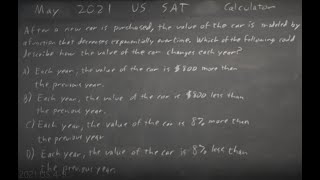 May 2021 US SAT Calculator
After a new car is purchased, the value of the car is modeled by
a function that decreases exponentially over time. Which of the following could
describe how the value of the car changes each year?
A) Each year, the value of the car is $800 more than
the previous year.
B) Each year, the value of the car is $800 less than
the previous year.
C) Each year, the value of the car is 8% more than
the previous year
D) Each year, the value of the car is 8% less than
the previous year